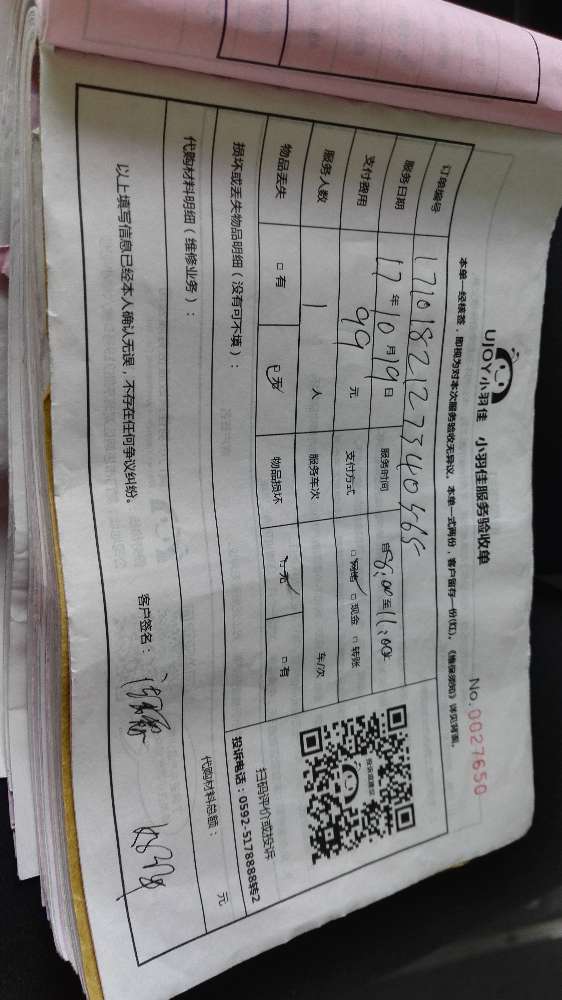 UJOY小羽佳 小羽佳服务验收单
No.0027650
本单一经核签，即视为对本次服务验收无异议。本单一式两份，客户留存一份(红)。《维保须知》详见背面。
订单编号 1710182127340565
服务日期 17年10月19日 服务时间 自8:00至11:00
支付费用 99元 支付方式 □网络 □现金 □转账
服务人数 1人 服务车次 车/次
物品丢失 □有 □无 物品损坏 □无 □有
投诉或建议
扫码评价或投诉
投诉电话：0592-5178888转2
损坏或丢失物品明细（没有可不填）：
代购材料明细（维修业务）： 代购材料总额： 元
以上填写信息已经本人确认无误，不存在任何争议纠纷。 客户签名：